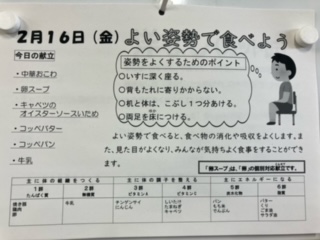 2月16日(金)よい姿勢で食べよう
今日の献立
・中華おこわ
・卵スープ
・キャベツの
オイスターソースいため
・コッペバター
・コッペパン
・牛乳
姿勢をよくするためのポイント
○いすに深く座る。
○背もたれに寄りかからない。
○机と体は、こぶし1つ分あける。
○両足を床につける。
よい姿勢で食べると、食べ物の消化や吸収をよくします。ま
た、見た目がよくなり、みんなが気持ちよく食事をすることができ
ます。
「卵スープ」は、「卵」の個別対応献立です。
主に体の組織をつくる
主に体の調子を整える
主にエネルギーになる
1群
2群
3群
4群
5群
6群
たんぱく質
無機質
ビタミンA
ビタミンC
炭水化物
脂質
焼き豚
鶏肉
卵
牛乳
チンゲンサイ
にんじん
しいたけ
たまねぎ
キャベツ
パン
もち米
でんぷん
バター
ごま油
サラダ油